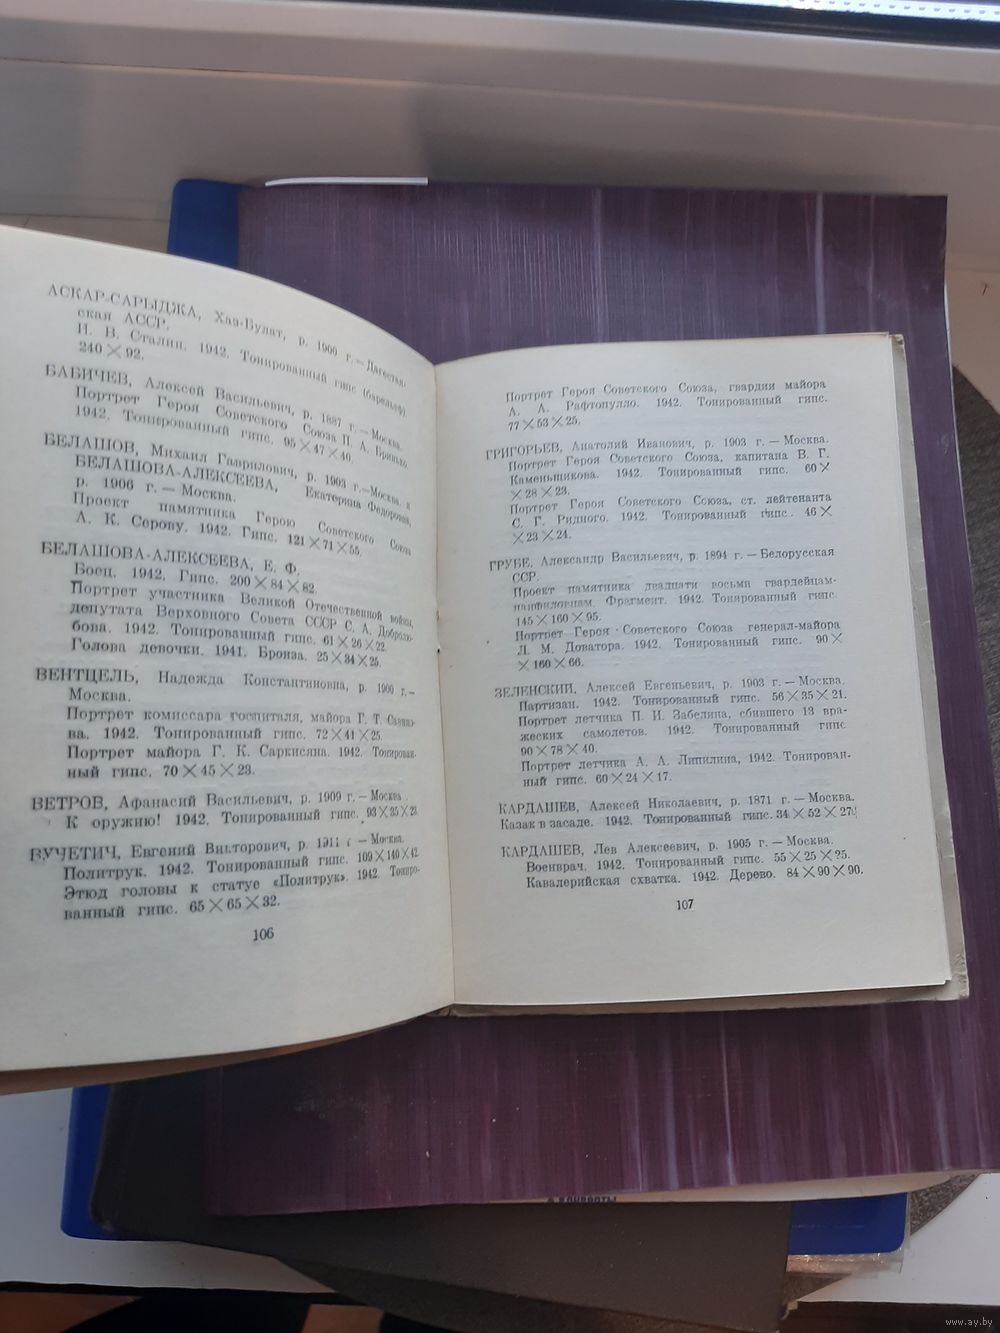 АСКАР-САРЫДЖА, Хаз-Булат, р. 1900 г. — Дагестан-
ская АССР.
И. В. Сталин. 1942. Тонированный гипс (барельеф).
240 × 92.
БАБИЧЕВ, Алексей Васильевич, р. 1887 г. — Москва.
Портрет Героя Советского Союза П. А. Бринько.
1942. Тонированный гипс. 95 × 47 × 40.
БЕЛАШОВ, Михаил Гаврилович, р. 1903 г. — Москва. и
БЕЛАШОВА-АЛЕКСЕЕВА, Екатерина Федоровна,
р. 1906 г. — Москва.
Проект памятника Герою Советского Союза
А. К. Серову. 1942. Гипс. 121 × 71 × 55.
БЕЛАШОВА-АЛЕКСЕЕВА, Е. Ф.
Боец. 1942. Гипс. 200 × 84 × 82.
Портрет участника Великой Отечественной войны,
депутата Верховного Совета СССР С. А. Добролю-
бова. 1942. Тонированный гипс. 61 × 26 × 22.
Голова девочки. 1941. Бронза. 25 × 34 × 25.
ВЕНТЦЕЛЬ, Надежда Константиновна, р. 1900 г. —
Москва.
Портрет комиссара госпиталя, майора Г. Т.
ва. 1942. Тонированный гипс. 72 × 41 × 25.
Портрет майора Г. К. Саркисяна. 1942. Тонирован-
ный гипс. 70 × 45 × 23.
ВЕТРОВ, Афанасий Васильевич, р. 1909 г. — Москва.
К оружию! 1942. Тонированный гипс. 93 × 35 × 23.
ВУЧЕТИЧ, Евгений Викторович, р. 1911 г — Москва.
Политрук. 1942. Тонированный гипс. 109 × 140 × 42.
Этюд головы к статуе «Политрук». 1942. Тониро-
ванный гипс. 65 × 65 × 32.
106
Портрет Героя Советского Союза, гвардии майора
А. А. Рафтопулло. 1942. Тонированный гипс.
77 × 53 × 25.
ГРИГОРЬЕВ, Анатолий Иванович, р. 1903 г. — Москва.
Портрет Героя Советского Союза, капитана В. Г.
Каменьщикова. 1942. Тонированный гипс. 60 ×
× 28 × 23.
Портрет Героя Советского Союза, ст. лейтенанта
С. Г. Ридного. 1942. Тонированный гипс. 46 ×
× 23 × 24.
ГРУБЕ, Александр Васильевич, р. 1894 г. — Белорусская
ССР.
Проект памятника двадцати восьми гвардейцам-
панфиловцам. Фрагмент. 1942. Тонированный гипс.
145 × 160 × 95.
Портрет Героя Советского Союза генерал-майора
Л. М. Доватора. 1942. Тонированный гипс. 90 ×
× 160 × 66.
ЗЕЛЕНСКИЙ, Алексей Евгеньевич, р. 1903 г. — Москва.
Партизан. 1942. Тонированный гипс. 56 × 35 × 21.
Портрет летчика П. И. Забелина, сбившего 13 вра-
жеских самолетов. 1942. Тонированный гипс
90 × 78 × 40.
Портрет летчика А. А. Липилина, 1942. Тонирован-
ный гипс. 60 × 24 × 17.
КАРДАШЕВ, Алексей Николаевич, р. 1871 г. — Москва.
Казак в засаде. 1942. Тонированный гипс. 34 × 52 × 27.
КАРДАШЕВ, Лев Алексеевич, р. 1905 г. — Москва.
Военврач. 1942. Тонированный гипс. 55 × 25 × 25.
Кавалерийская схватка. 1942. Дерево. 84 × 90 × 90.
107
www.ay.by